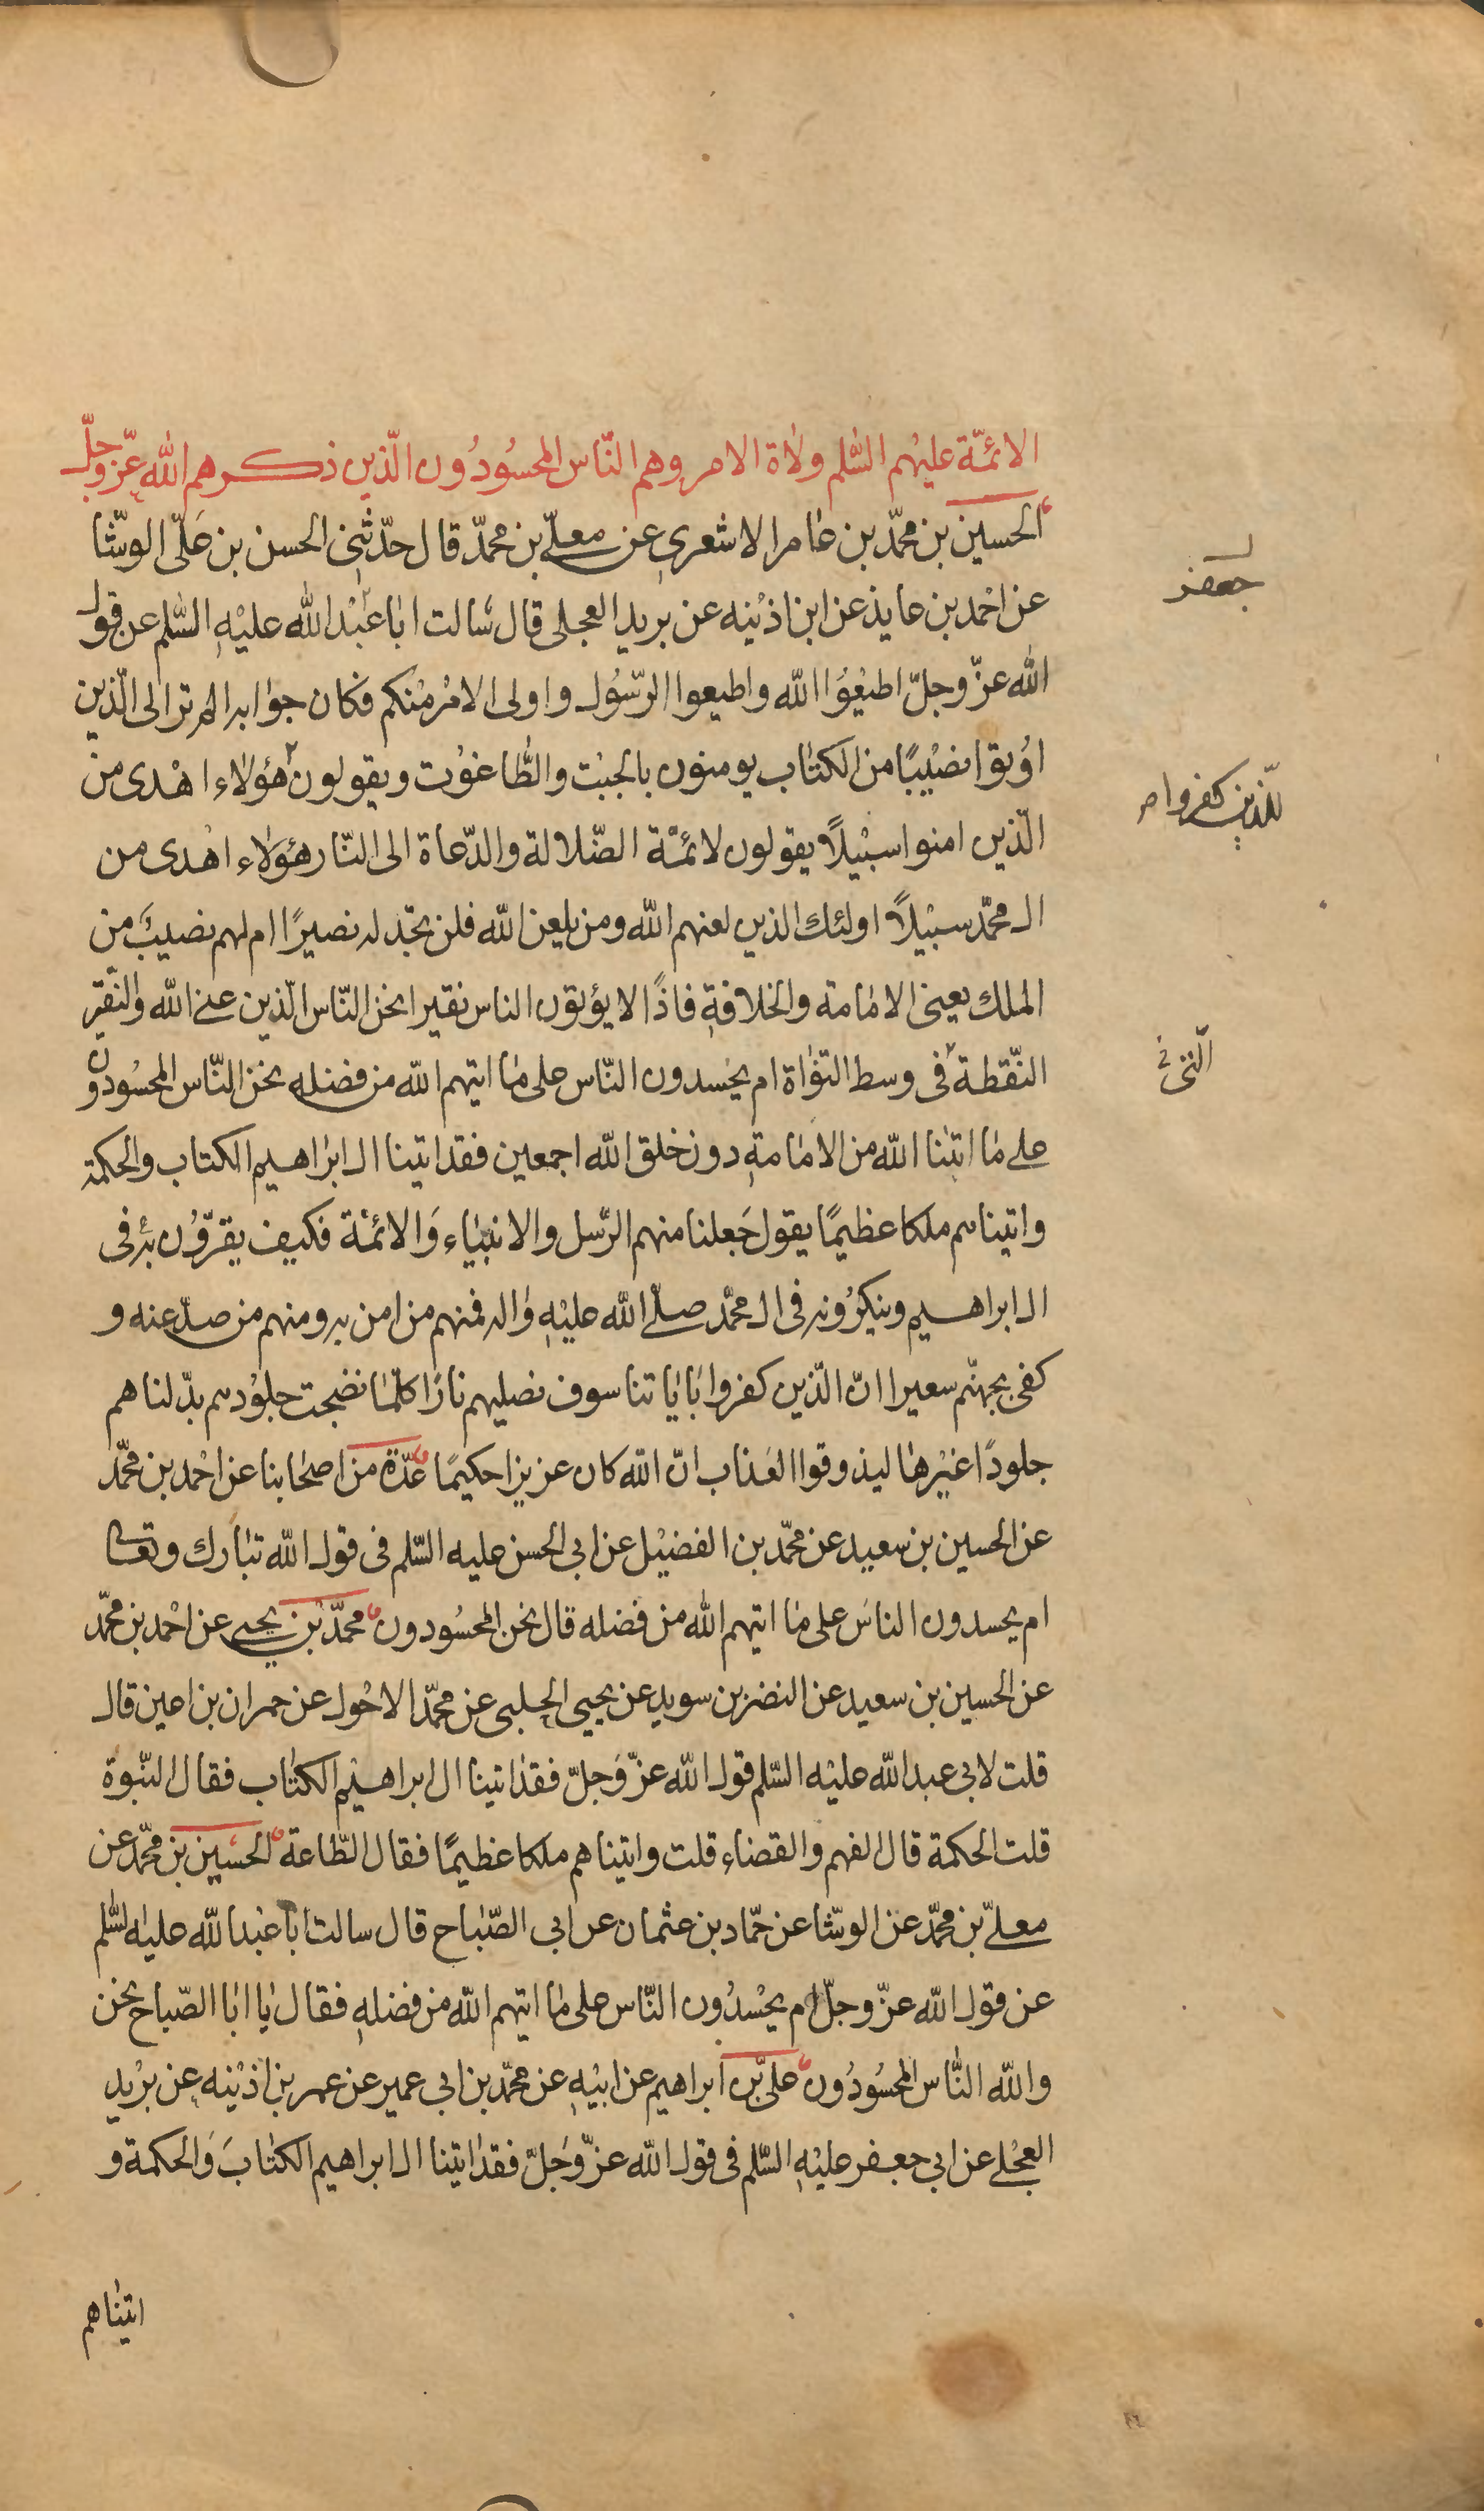 الائمّة عليهم السّلم ولاة الامر وهم النّاس المحسُودُون الّذين ذكرهم الله عزّ وجلّ
الحسين بن محمّد بن عامر الاشعرى عن معلّى بن محمّد قال حدّثنى الحسن بن عَلّى الوشّا
عن احمد بن عايذ عن ابن اذينه عن بريد العجلى قال سالت ابا عبْد الله عليْهِ السّلم عن قول
جعفر
الله عزّ وجلّ اطيْعُوا الله واطيعوا الرّسُول واولى الامْر منْكم فكان جوابه الم تر الى الّذين
اوُتوا نصْيبًا من الكتاب يومنون بالجبْت والطّاغوْت ويقولون هؤلاء اهْدى من
للّذين كفروا
الّذين امنوا سبْيلًا يقولون لائمّة الضّلالة والدّعاة الى النّار هؤلاء اهْدى من
ال محمّد سبْيلًا اولئك الذين لعنهم الله ومن يلعن الله فلن تجد له نصيرًا ام لهم نصيبَ من
الملك يعنى الامامة والخلافةِ فاذًا لا يؤتون الناس نقيرا نحن النّاس الّذين عنى الله والنّقير
النّقطة فى وسط النّواة ام يحْسدون النّاس على ما اتيهم الله من فضله نحن النّاس المحسُودون
الّتى
على ما اتيٰنا الله من الامامةِ دون خلق الله اجمعين فقد اتينا ال ابراهيم الكتاب والحكمة
واتيناهم ملكا عظيمًا يقول جَعلنا منهم الرّسل والانبيٰاء وَالائمّة فكيف يقرّوُن به فى
ال ابراهيم وينكرُونه فى ال محمّد صلّى الله عليْهِ واله فمنهم من امن به ومنهم من صدّ عنه و
كفى بجهنّم سعيرا انّ الّذين كفروا باياتنا سوف نصليهم نارًا كلّما نضجت جلوُدهم بدّلناهم
جلودًا غيْرها ليذوقوا العَذاب انّ الله كان عزيزا حكيمًا عدّة من اصحابنا عن احْمد بن محمّد
عن الحسين بن سعيد عن محمّد بن الفضيْل عن ابى الحسن عليه السّلم فى قول الله تبارك وتعالى
ام يحسدون الناسَ على ما اتيهم الله من فضله قال نحن المحسُودون محمّد بْن يحيى عن احْمد بن محمّد
عن الحسين بن سعيد عن النضر بن سويد عن يحيى الحلبى عن محمّد الاحْول عن حمران بن اعين قال
قلت لابى عبد الله عليْه السّلم قول الله عزّ وَجلّ فقد اتينا ال ابراهيْم الكتٰاب فقال النّبوة
قلت الحكمة قال الفهم والقضاء قلت واتيناهم ملكا عظيمًا فقال الطّاعة الحسين بن محمّد عن
معلّى بن محمّد عن الوشّا عن حمّاد بن عثمان عن ابى الصّباح قال سالت ابا عبْد الله عليه السّلم
عن قول الله عزّ وجلّ ام يحْسدُون النّاس على ما اتيهم الله من فضلهِ فقال يا ابا الصّباح نحن
والله النّاس المحسُودُون علىّ بن ابراهيم عن ابيْهِ عن محمّد بن ابى عمير عن عمر بن اذيْنه عن بُريد
العجْلى عن ابى جعفر عليْهِ السّلم فى قول الله عزّ وَجَلّ فقد اتينا ال ابراهيم الكتابَ وَالحكمة و
اتيناهم